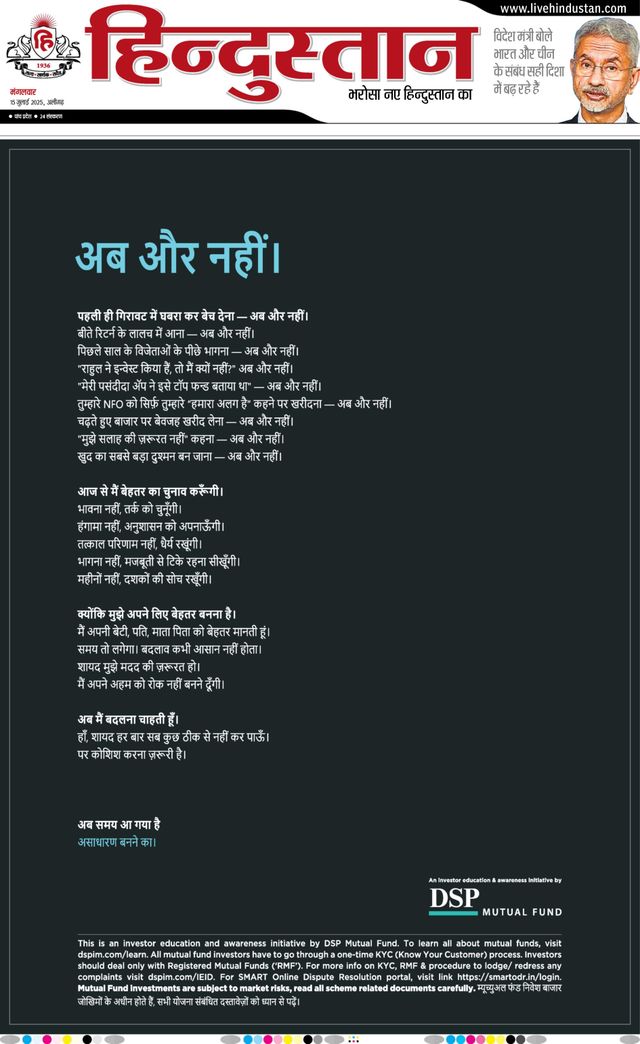 www.livehindustan.com
हिन्दुस्तान
भरोसा नए हिन्दुस्तान का
1936
मंगलवार
15 जुलाई 2025, अलीगढ़
● पांच प्रदेश ● 24 संस्करण
विदेश मंत्री बोले
भारत और चीन
के संबंध सही दिशा
में बढ़ रहे हैं
अब और नहीं।
पहली ही गिरावट में घबरा कर बेच देना — अब और नहीं।
बीते रिटर्न के लालच में आना — अब और नहीं।
पिछले साल के विजेताओं के पीछे भागना — अब और नहीं।
"राहुल ने इन्वेस्ट किया हैं, तो मैं क्यों नहीं?" अब और नहीं।
"मेरी पसंदीदा ॲप ने इसे टॉप फन्ड बताया था" — अब और नहीं।
तुम्हारे NFO को सिर्फ़ तुम्हारे "हमारा अलग है" कहने पर खरीदना — अब और नहीं।
चढ़ते हुए बाजार पर बेवजह खरीद लेना — अब और नहीं।
"मुझे सलाह की ज़रूरत नहीं" कहना — अब और नहीं।
खुद का सबसे बड़ा दुश्मन बन जाना — अब और नहीं।
आज से मैं बेहतर का चुनाव करूँगी।
भावना नहीं, तर्क को चुनूँगी।
हंगामा नहीं, अनुशासन को अपनाऊँगी।
तत्काल परिणाम नहीं, धैर्य रखूंगी।
भागना नहीं, मजबूती से टिके रहना सीखूँगी।
महीनों नहीं, दशकों की सोच रखूँगी।
क्योंकि मुझे अपने लिए बेहतर बनना है।
मैं अपनी बेटी, पति, माता पिता को बेहतर मानती हूं।
समय तो लगेगा। बदलाव कभी आसान नहीं होता।
शायद मुझे मदद की ज़रूरत हो।
मैं अपने अहम को रोक नहीं बनने दूँगी।
अब मैं बदलना चाहती हूँ।
हाँ, शायद हर बार सब कुछ ठीक से नहीं कर पाऊँ।
पर कोशिश करना ज़रूरी है।
अब समय आ गया है
असाधारण बनने का।
An investor education & awareness initiative by
DSP
MUTUAL FUND
This is an investor education and awareness initiative by DSP Mutual Fund. To learn all about mutual funds, visit
dspim.com/learn. All mutual fund investors have to go through a one-time KYC (Know Your Customer) process. Investors
should deal only with Registered Mutual Funds ('RMF'). For more info on KYC, RMF & procedure to lodge/ redress any
complaints visit dspim.com/IEID. For SMART Online Dispute Resolution portal, visit link https://smartodr.in/login.
Mutual Fund investments are subject to market risks, read all scheme related documents carefully. म्यूच्युअल फंड निवेश बाजार
जोखिमों के अधीन होते हैं, सभी योजना संबंधित दस्तावेज़ों को ध्यान से पढ़ें।